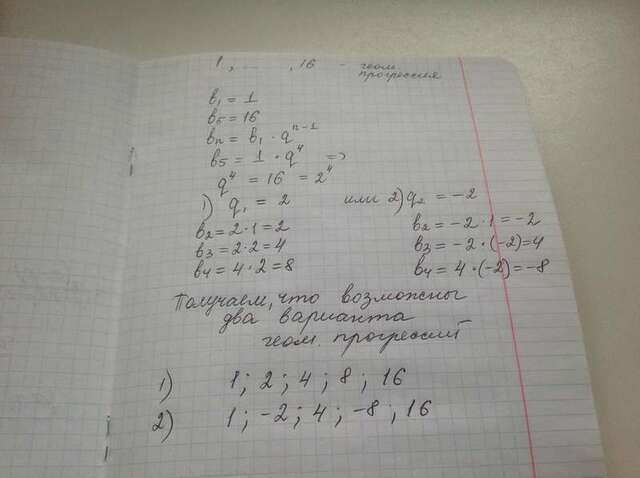 1, ... , 16 - геом.
прогрессия
b₁ = 1
b₅ = 16
bₙ = b₁ · qⁿ⁻¹
b₅ = 1 · q⁴ =>
q⁴ = 16 = 2⁴
1) q₁ = 2 или 2) q₂ = -2
b₂ = 2·1 = 2 b₂ = -2·1 = -2
b₃ = 2·2 = 4 b₃ = -2·(-2) = 4
b₄ = 4·2 = 8 b₄ = 4·(-2) = -8
Получаем, что возможны
два варианта
геом. прогрессий
1) 1; 2; 4; 8; 16
2) 1; -2; 4; -8; 16